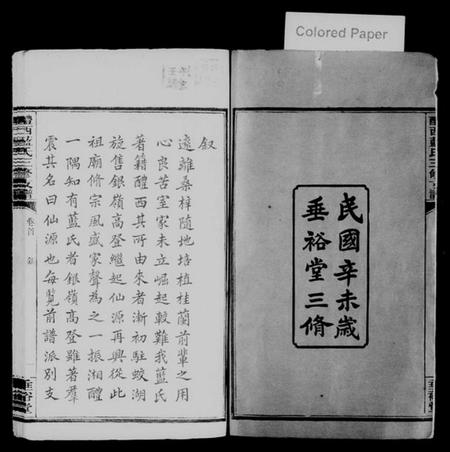 Colored Paper
民國辛未歲
垂裕堂三脩
醴西藍氏三修支譜
垂裕堂
叙
遠離桑梓随地培植桂蘭前輩之用
心良苦室家未立崛起較難我藍氏
著籍醴西其可由來者漸初駐蛟湖
旋售銀嶺高登繼起仙源再興從此
祖廟脩宗風盛家聲為之一振湘醴
一隅知有藍氏者銀嶺高登雖著羣
震其名曰仙源也每覧前譜派別支
卷首
垂裕堂